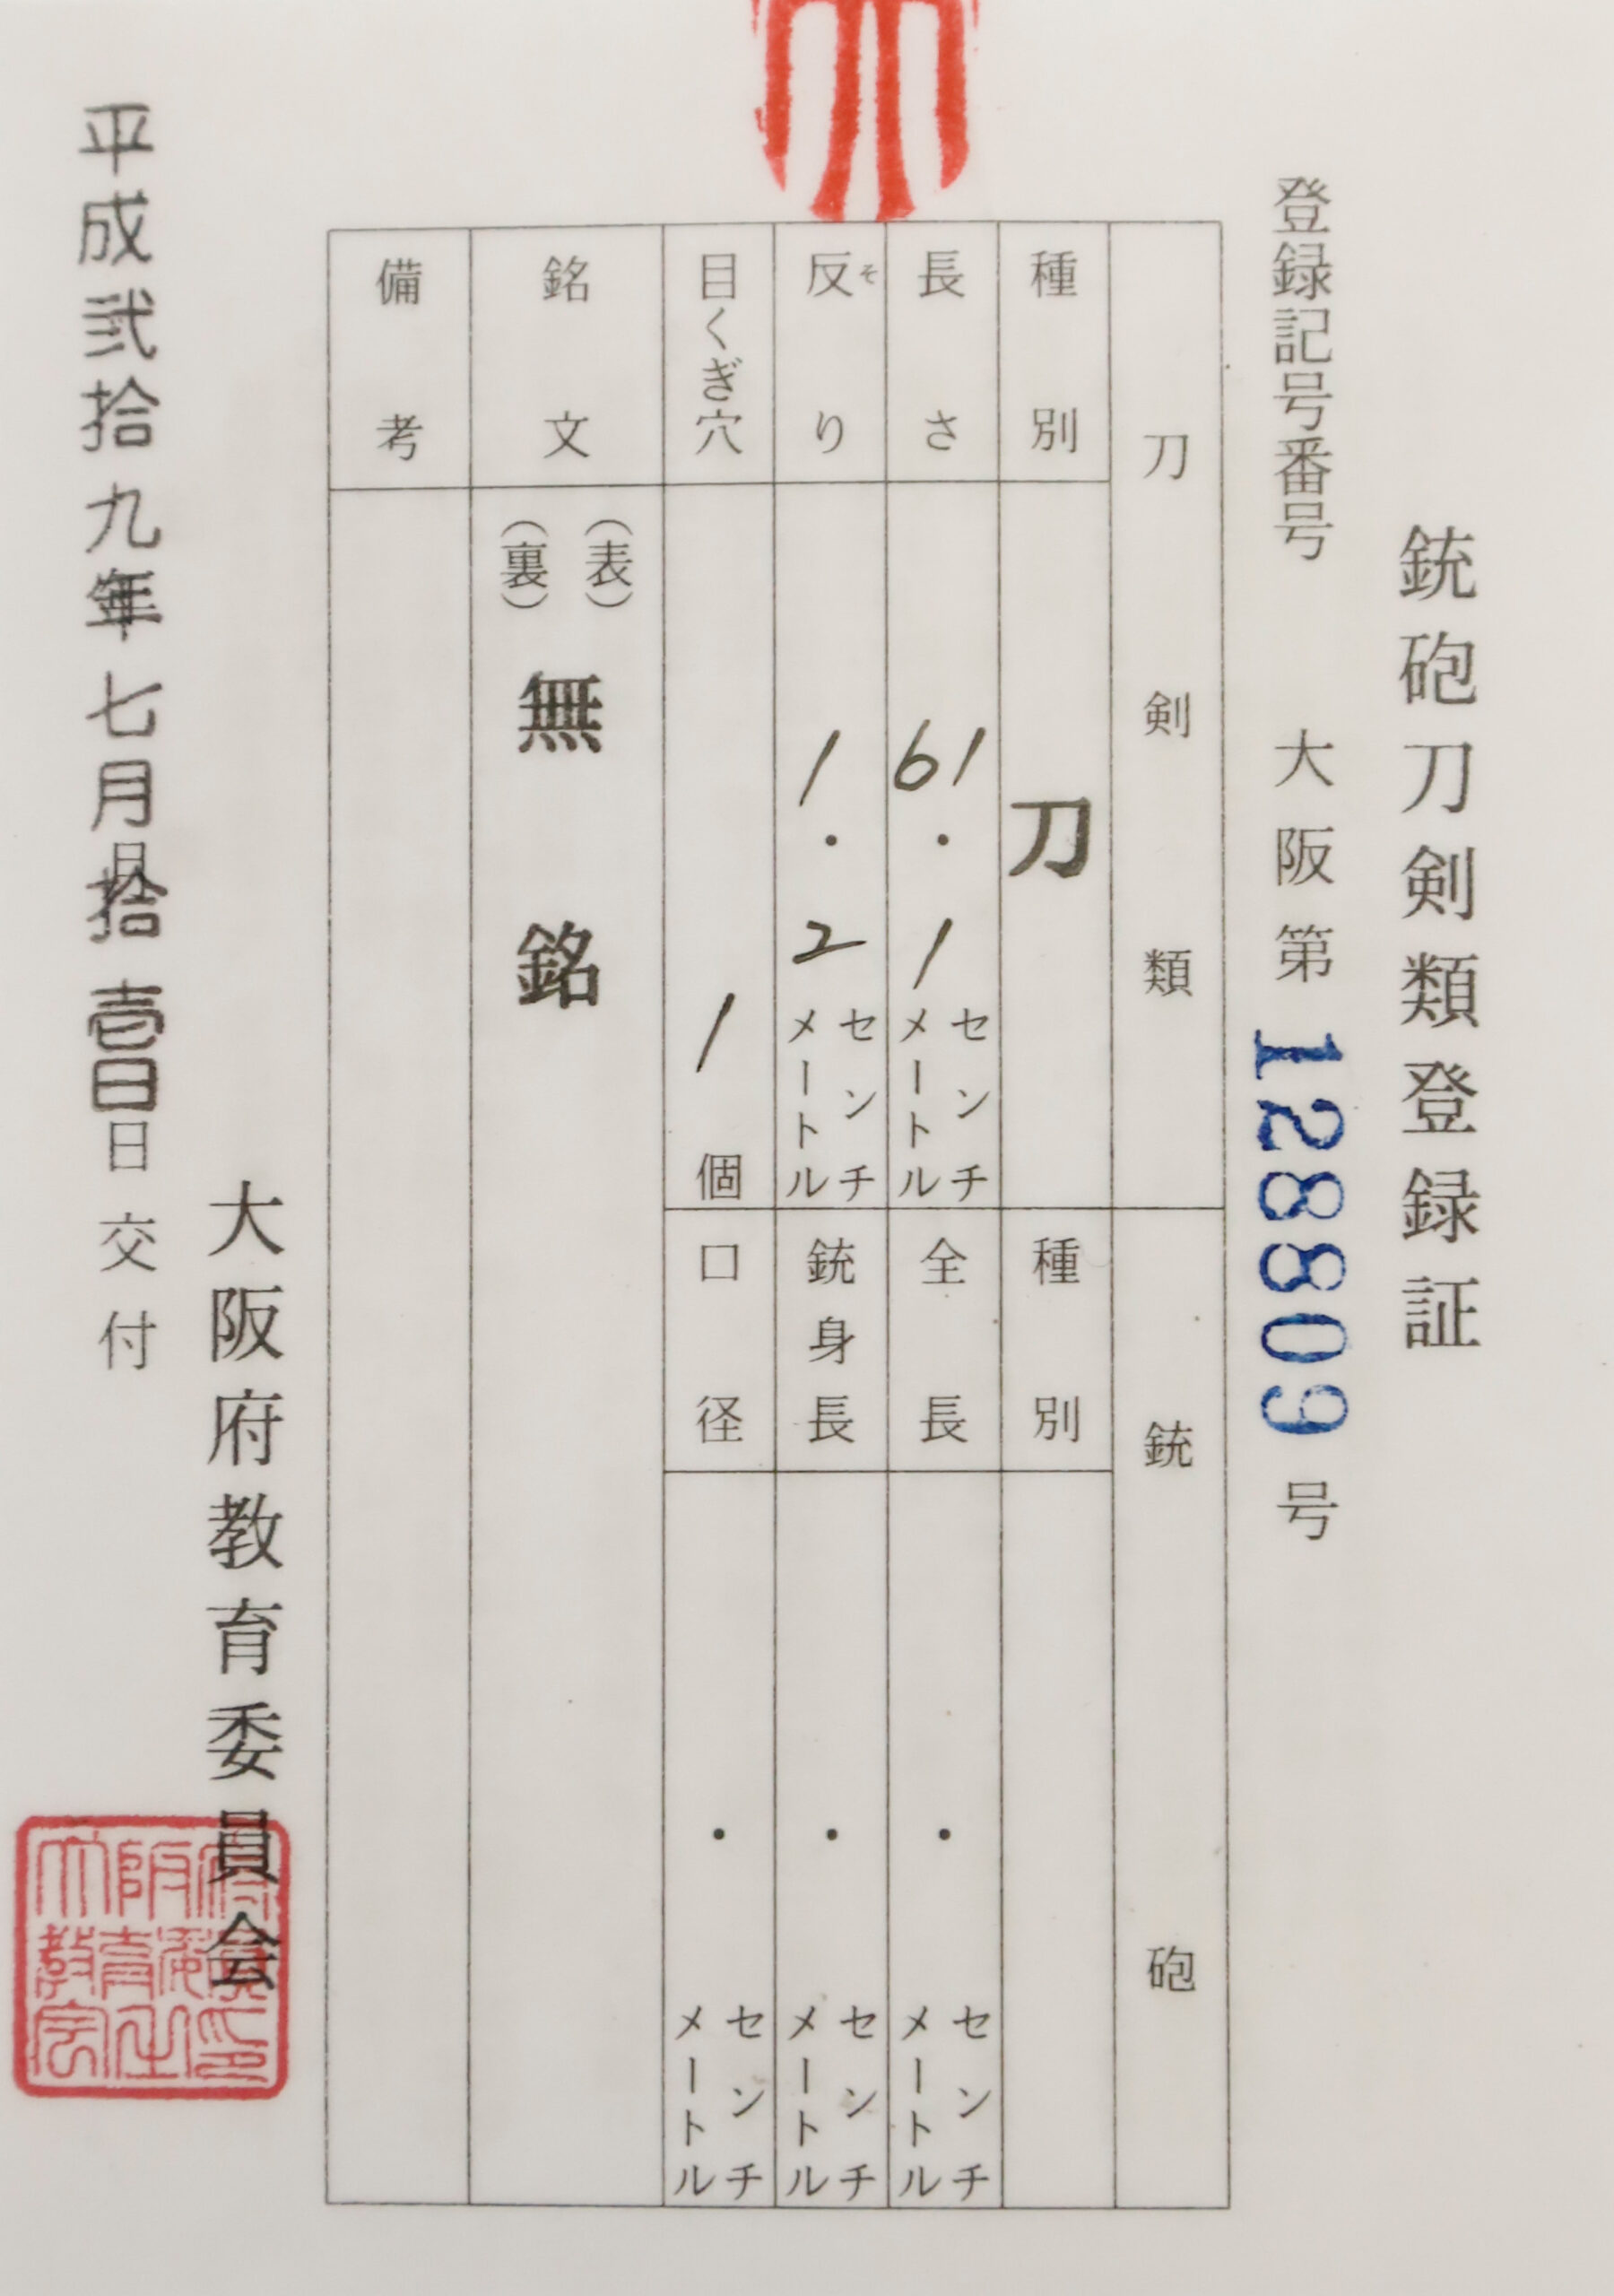 銃砲刀剣類登録証
登録記号番号 大阪第 128809 号
刀剣類
種別 刀
長さ 61.1 センチメートル
反り 1.2 センチメートル
そ
目くぎ穴 1 個
銃砲
種別
全長 . センチメートル
銃身長 . センチメートル
口径 . センチメートル
銘文 (表) (裏) 無銘
備考
大阪府教育委員会
平成弐拾九年七月拾壱日 日交付